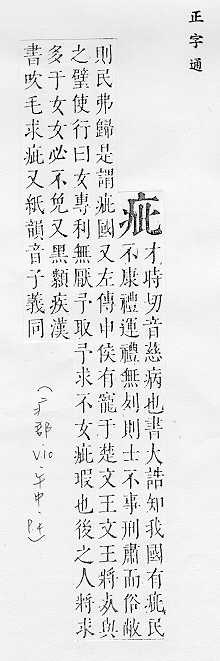 正字通
疵
才時切音慈病也書大誥知我國有疵民
不康禮運禮無列則士不事刑肅而俗敝
則民弗歸是謂疵國又左傳申侯有寵于楚文王文王將死與
之璧使行曰女專利無厭予取予求不女疵瑕也後之人將求
多于女女必不免又黑纇疾漢
書吹毛求疵又紙韻音子義同
(疒部.V10.午中.P.4)